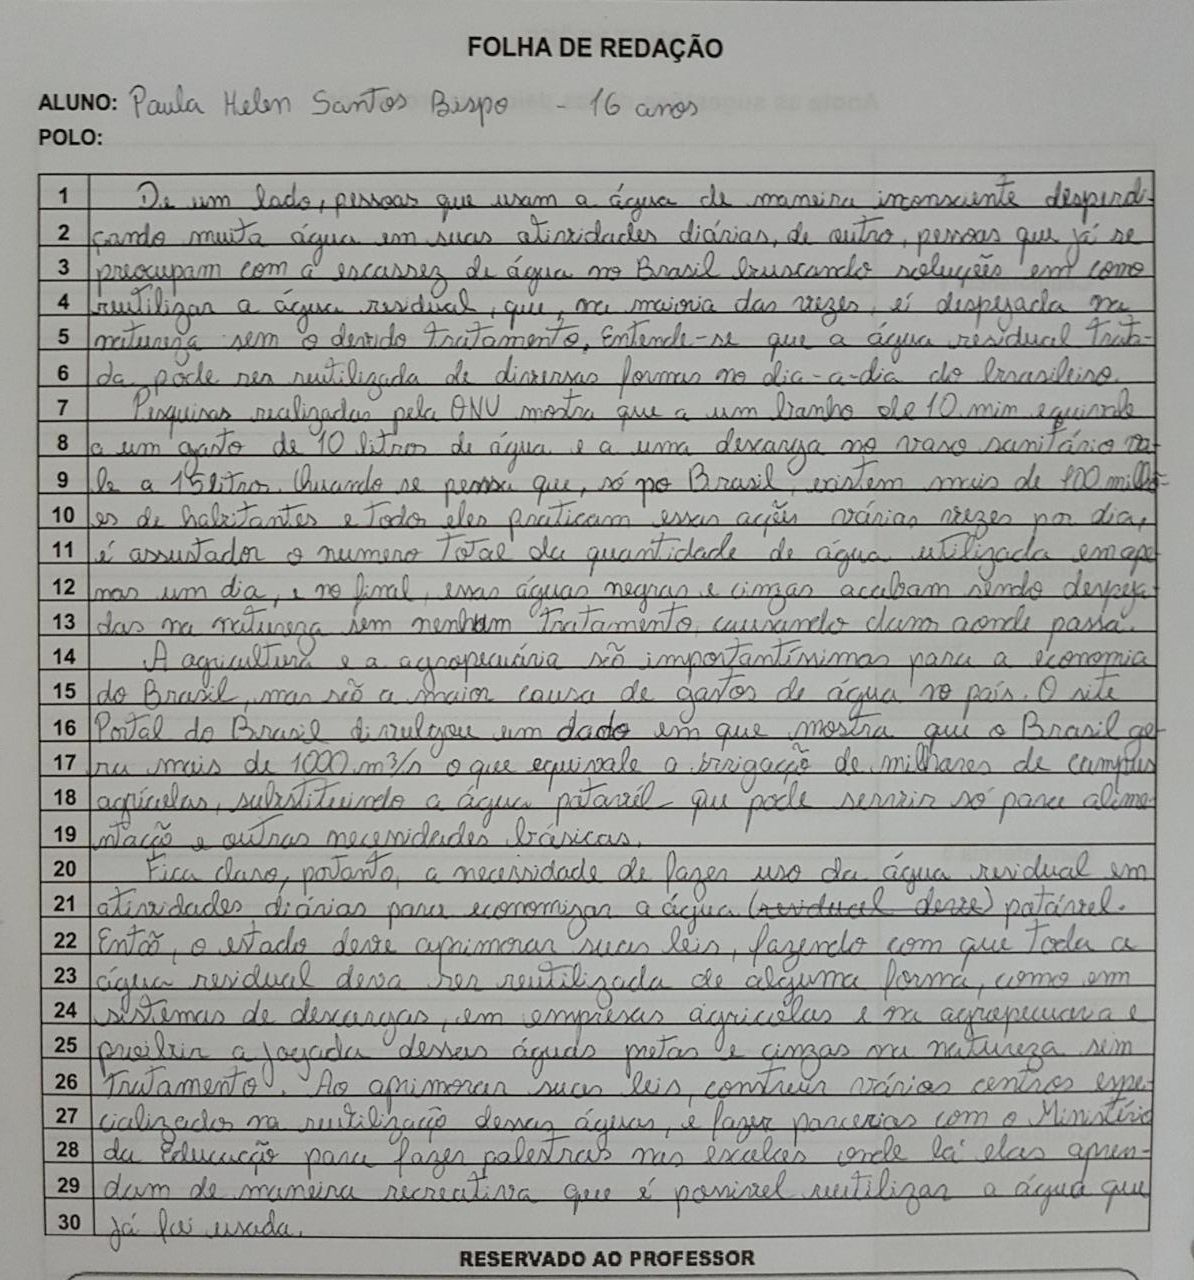 FOLHA DE REDAÇÃO
ALUNO: Paula Helen Santos Bispo - 16 anos
POLO:
1 De um lado, pessoas que usam a água de maneira inconsciente desperdi-
2 çando muita água em suas atividades diárias, de outro, pessoas que já se
3 preocupam com a escassez de água no Brasil buscando soluções em como
4 reutilizar a água residual, que, na maioria das vezes, é despejada na
5 natureza sem o devido tratamento. Entende-se que a água residual trata-
6 da pode ser reutilizada de diversas formas no dia-a-dia do brasileiro.
7 Pesquisas realizadas pela ONU mostra que a um banho de 10 min equivale
8 a um gasto de 10 litros de água e a uma descarga no vaso sanitário va-
9 le a 15 litros. Quando se pensa que, só no Brasil, existem mais de 100 milhõ-
10 es de habitantes e todos eles praticam essas ações várias vezes por dia,
11 é assustador o numero total da quantidade de água utilizada em ape-
12 nas um dia, e no final, essas águas negras e cinzas acabam sendo despeja-
13 das na natureza sem nenhum tratamento, causando dano aonde passa.
14 A agricultura e a agropecuária são importantíssimas para a economia
15 do Brasil, mas são a maior causa de gastos de água no país. O site
16 Portal do Brasil divulgou um dado em que mostra que o Brasil ge-
17 ra mais de 1000 m³/s o que equivale a irrigação de milhares de campus
18 agrícolas, substituindo a água potável que pode servir só para alime-
19 ntação e outras necessidades básicas.
20 Fica claro, potanto, a necessidade de fazer uso da água residual em
21 atividades diárias para economizar a água (residual deve) potável.
22 Então, o estado deve aprimorar suas leis, fazendo com que toda a
23 água residual deva ser reutilizada de alguma forma, como em
24 sistemas de descargas, em empresas agricolas e na agropecuava e
25 proibir a jogada dessas águas pretas e cinzas na natureza sem
26 tratamento. Ao aprimorar suas leis, construir vários centros espe-
27 cializados na reutilização dessas águas, e fazer parcerias com o Ministério
28 da Educação para fazer palestras nas escolas onde lá elas apren-
29 dam de maneira recreativa que é possivel reutilizar a água que
30 já foi usada.
RESERVADO AO PROFESSOR